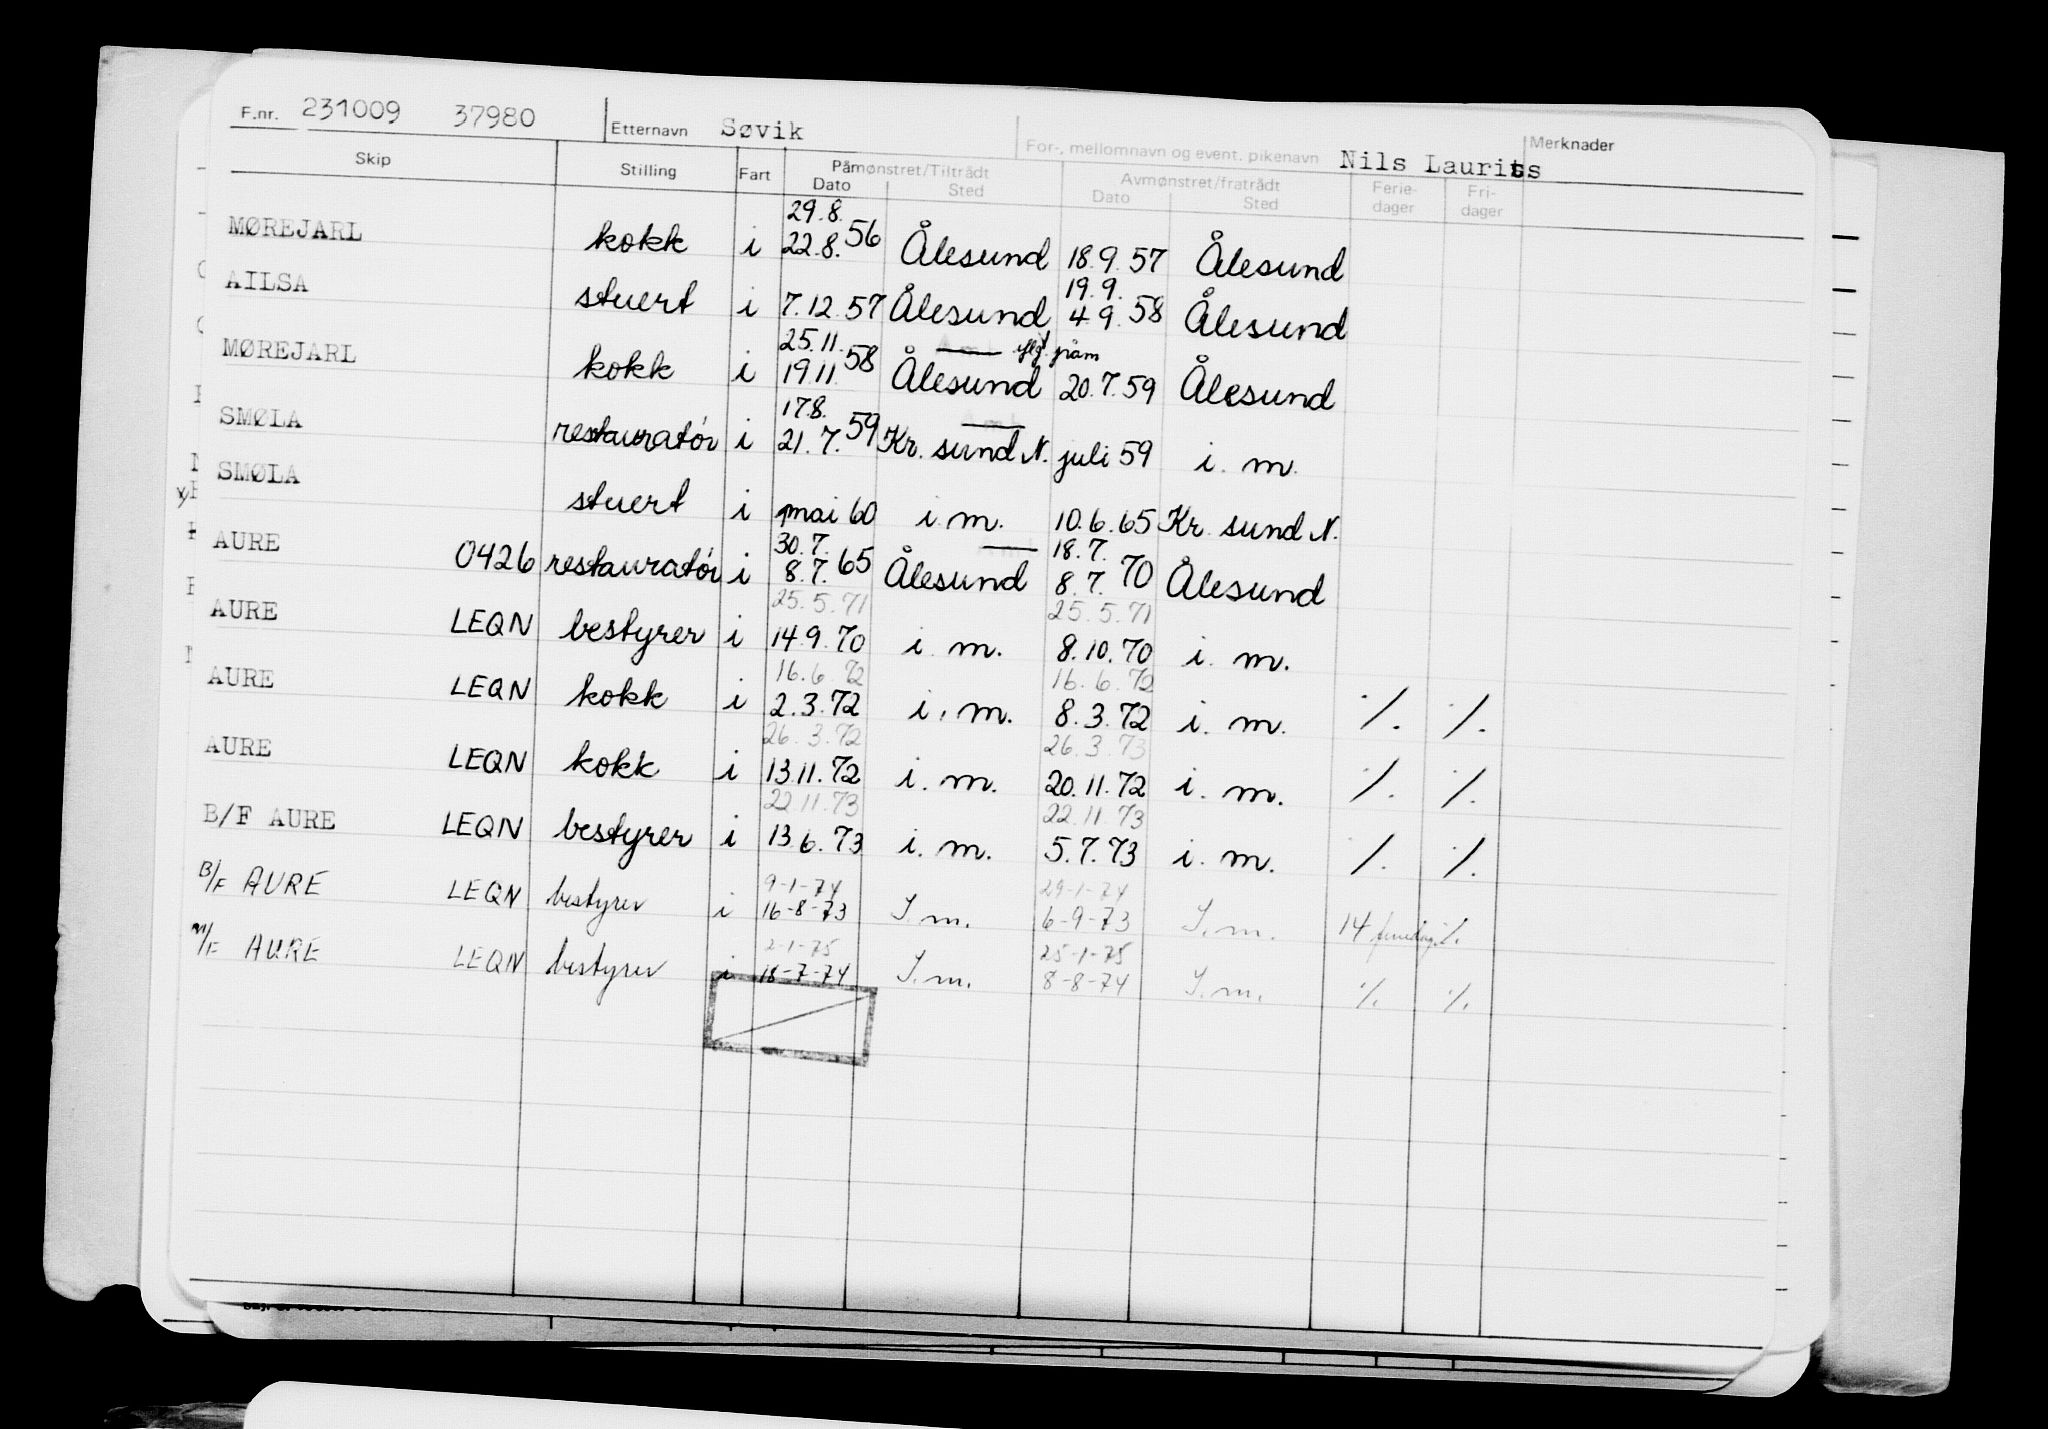 F.nr. 231009 37980 Etternavn Søvik For-, mellomnavn og event. pikenavn Nils Laurits Merknader
Skip Stilling Fart Påmønstret/Tiltrådt Avmønstret/fratrådt Ferie- Fri-
Dato Sted Dato Sted dager dager
29.8.
MØREJARL kokk i 22.8. 56 Ålesund 18.9.57 Ålesund
19.9.
AILSA stuert i 7.12.57 Ålesund 4.9.58 Ålesund
25.11. påm
MØREJARL kokk i 19.11.58 Ålesund 20.7.59 Ålesund
17.8.
SMØLA restauratør i 21.7.59 Kr. sund N. juli 59 i. m.
SMØLA stuert i mai 60 i. m. 10.6.65 Kr. sund N.
30.7. 18.7.
AURE 0426 restauratør i 8.7.65 Ålesund 8.7.70 Ålesund
25.5.71 25.5.71
AURE LEQN bestyrer i 14.9.70 i. m. 8.10.70 i. m.
16.6.72 16.6.72
AURE LEQN kokk i 2.3.72 i. m. 8.3.72 i. m. ./. ./.
26.3.72 26.3.73
AURE LEQN kokk i 13.11.72 i. m. 20.11.72 i. m. ./. ./.
22.11.73 22.11.73
B/F AURE LEQN bestyrer i 13.6.73 i. m. 5.7.73 i. m. ./. ./.
9-1-74 29-1-74
B/F AURE LEQN bestyrer i 16-8-73 I. m. 6-9-73 I. m. 14 ./.
2-1-75 25-1-75
M/F AURE LEQN bestyrer i 18-7-74 I. m. 8-8-74 I. m. ./. ./.